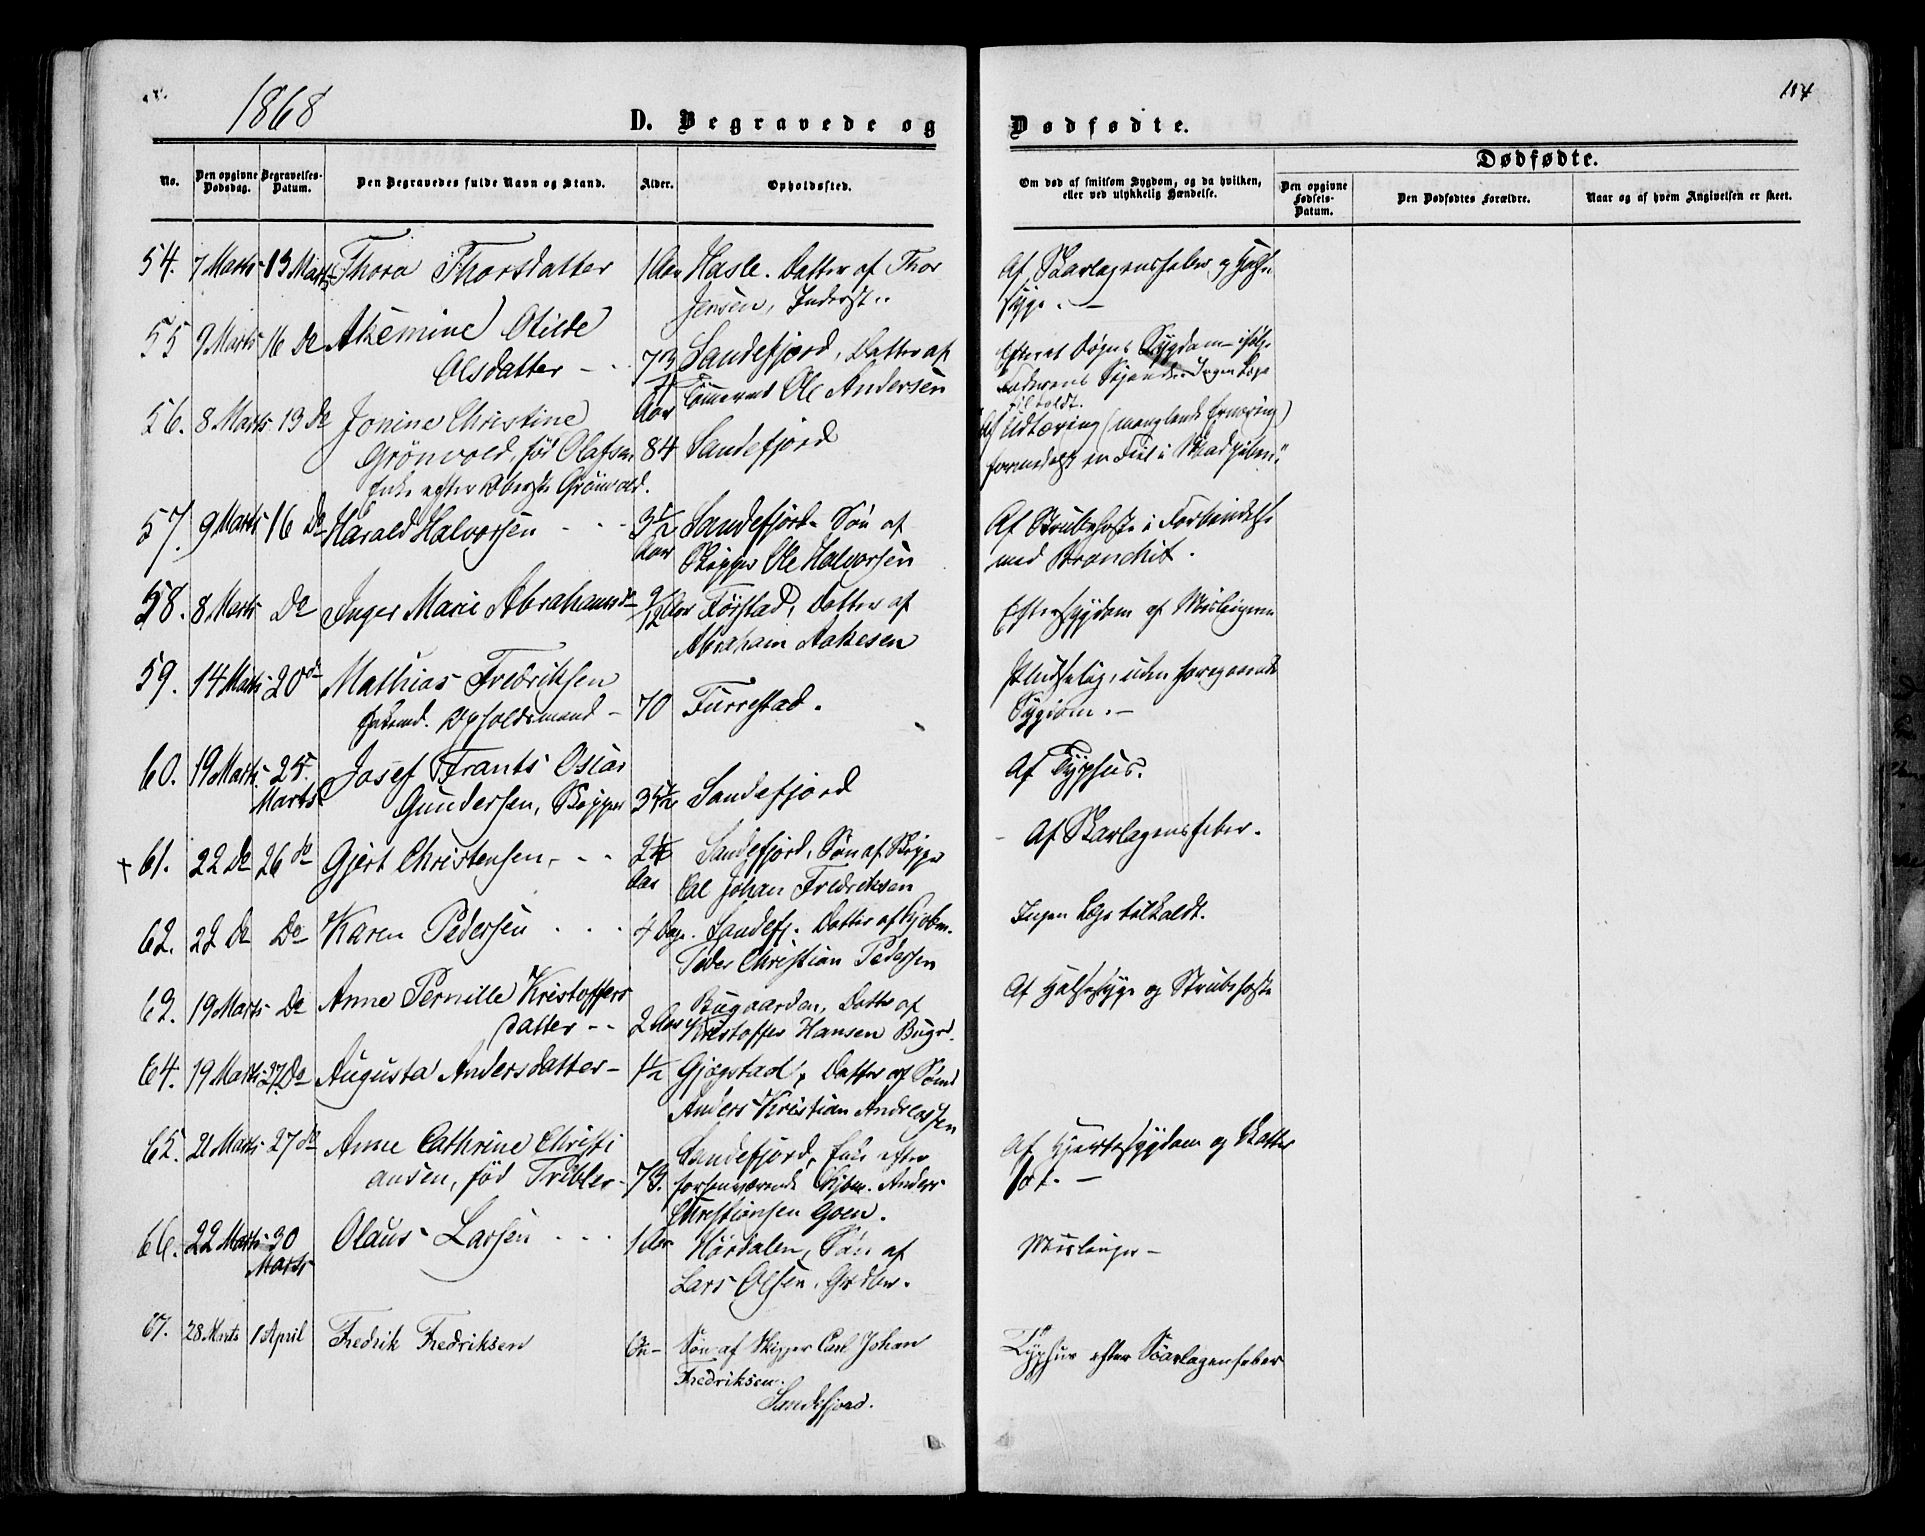 1868
114
D. Begravede og Dødfødte.
No.
Den opgivne Dødsdag.
Begravelses-Datum.
Den Begravedes fulde Navn og Stand.
Alder.
Opholdssted.
Om død af smitsom Sygdom, og da hvilken,
eller ved ulykkelig Hændelse.
Dødfødte.
Den opgivne Fødsels-Datum.
Den Dødfødtes Forældre.
Naar og af hvem Angivelsen er skeet.
54. 7 Marts 13 Marts Thora Thorsdatter 1 Aar Hasle. Datter af Thor
Jensen, Inderst.
Af Skarlagensfeber og Halse
syge. —
55 9 Marts 16 Do Akemine Otilde
Olsdatter - - 7 3/4 Aar Sandefjord, Datter af
Tømmermd Ole Andersen
Efter et Døgns Sygdom ifølge
Faderens Sigende. Ingen Læge
tilkaldt.
56. 8 Marts 13 Do Jonine Christine
Grönvold, fød Olafsen 84 Sandefjord
Enke efter Oberst Grönvold.
Af Udtæring (manglende Ernæring)
formedelst en Feil i Madpiben.
57. 9 Marts 16 Do Harald Halvorsen - - - 3 1/2 Aar Sandefjord. Sön af
Skipper Ole Halvorsen
Af Strubehoste i Forbindelse
med Bronchit.
58. 8 Marts Do Inger Marie Abrahamsd 9/12 Aar Förstad, Datter af
Abraham Aakesen
Eftersygdom af Mæslingerne
59. 14 Marts 20 do Mathias Fredriksen
Opholdsmand - 70 Furrestad.
Pludselig, uden foregaaende
Sygdom. —
60. 19 Marts 25. Marts Josef Frants Oscar
Gundersen, Skipper 35 1/2 Sandefjord
Af Typhus.
+ 61. 22 Do 26 do Gjert Christensen, - - 2 1/4 Aar Sandefjord, Sön af Skipper
Carl Johan Fredriksen
Af Skarlagensfeber.
62. 22 Do Do Karen Pedersen . . . 4 Dage. Sandefj. Datter af Kjøbm.
Peder Christian Pedersen
Ingen Læge tilkaldt.
63. 19 Marts Do Anne Pernille Kristoffers
datter - - 2 Aar Bugaarden, Datter af
Kristoffer Hansen Bugrd.
Af Halsesyge og Strubehoste
64. 19 Marts 27. Do Augusta Andersdatter - 1 1/2 Gjøgstad, Datter af Sömd
Anders Kristian Andreassen
65. 21 Marts 27 do Anne Cathrine Christi
ansen, fød Tribler - 73. Sandefjord, Enke efter
forhenværende Kjöbm. Anders
Christiansen Goen.
Af Hjertesygdom og Vatter
sot. —
66. 22 Marts 30 Marts Olaus Larsen . . . 1 Aar Hördalen, Sön af
Lars Olsen, Grdbr.
Mæslinger —
67. 28 Marts 1 April Fredrik Fredriksen 6 — Sön af Skipper Carl Johan
Fredriksen.
Sandefjord.
Typhus efter Scarlagensfeber